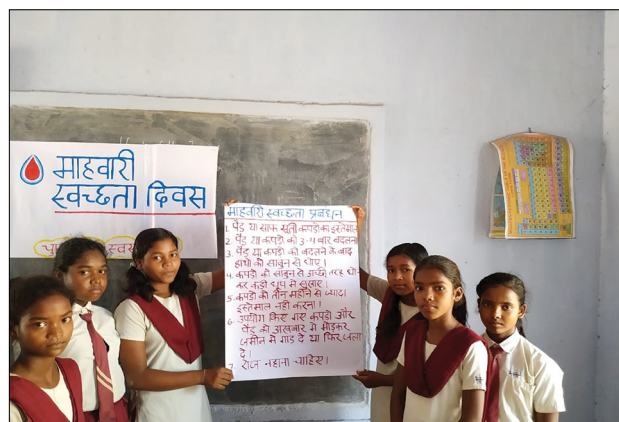 माहवारी
स्वच्छता दिवस
माहवारी स्वच्छता प्रबंधन
1. पैड या साफ सूती कपड़ो का इस्तेमाल
2. पैड या कपड़ो को 3-4 बार बदलना
3. पैड या कपड़ो को बदलने के बाद
हाथो को साबुन से धोए।
4. कपड़ो को साबुन से अच्छे तरह धो
कर कड़ी धूप मे सुखाए।
5. कपड़ो को तीन महीने से ज्यादा
इस्तेमाल नही करना।
6. उपयोग किए गए कपड़ो और
पैड को अखबार मे मोड़कर
जमीन मे गाड़ दे या फिर जला
दे।
7. रोज नहाना चाहिए।